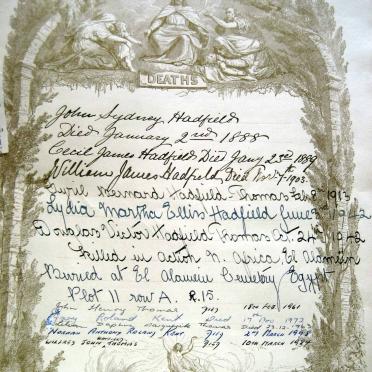 DEATHS
John Sydney Hadfield
Died January 2nd 1888
Cecil James Hadfield Died Jany 23rd 1889
William James Hadfield Died 7th 1903
Cyril Bernard Hadfield-Thomas Feb 8th 1913
Lydia Martha Ellis Hadfield June 1942
Douglas Victor Hadfield-Thomas Oct. 24th 1942
Killed in action N. Africa, El Alamein
Buried at El Alamein Cemetery Egypt
Plot II row A. R.15.
John Henry Thomas died 18th Feb. 1961
Roland Kent Died 17th Nov 1972
Daphne Thomas Died 23.12.1963
Norman Anthony Roland Kent died 27th March
Wilfred John Thomas died - 10th March